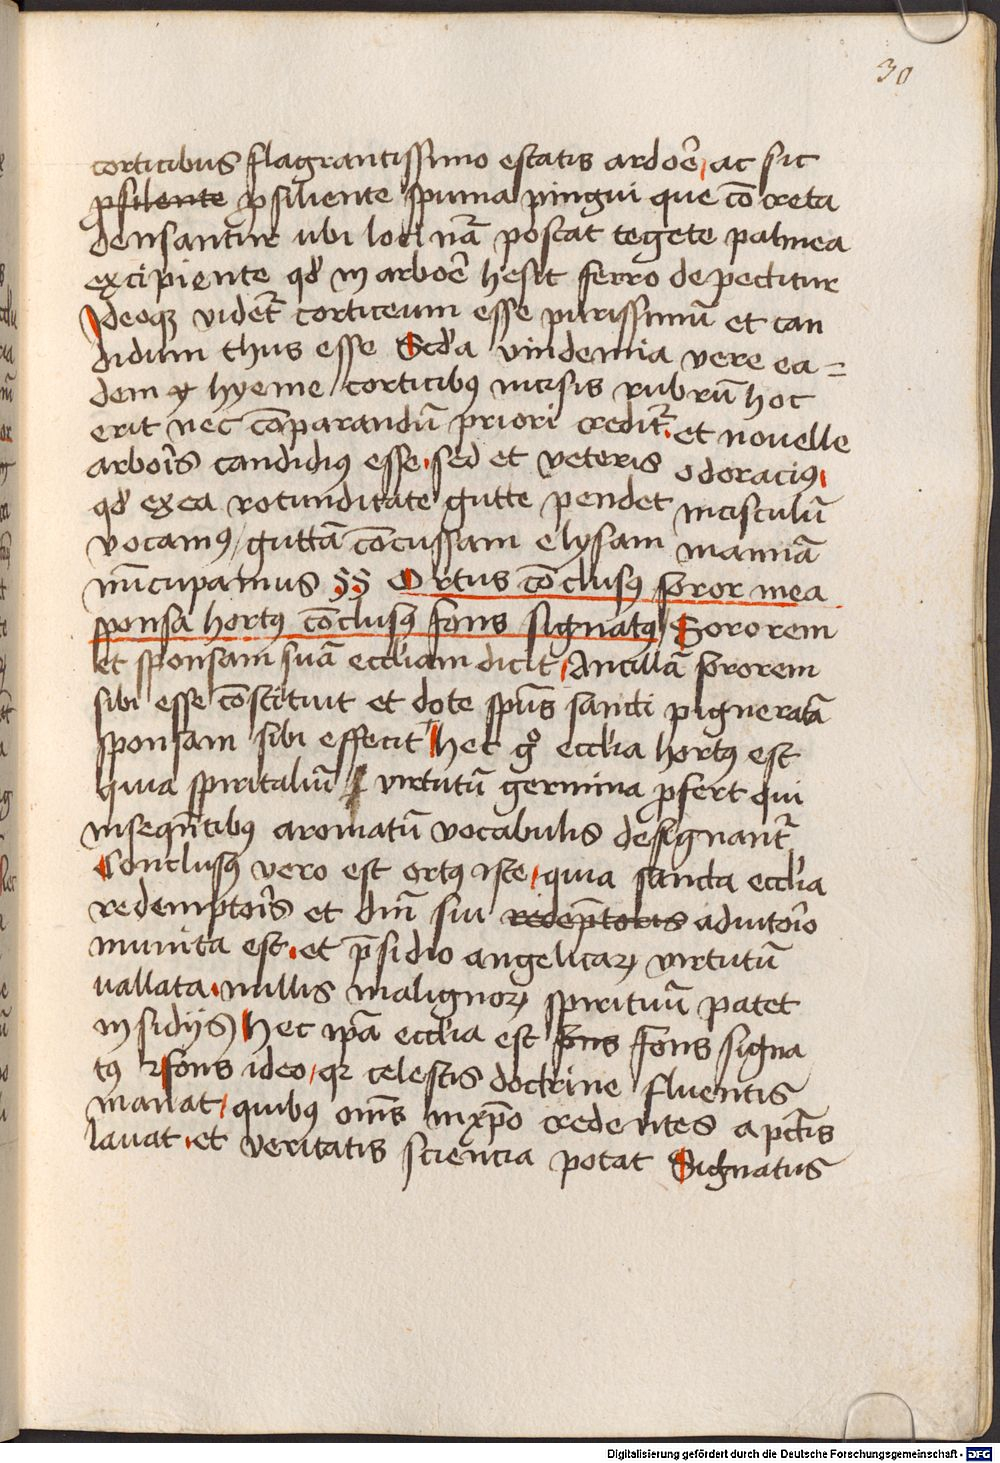 30
corticibus flagrantissimo estatis ardoē, ac sic
ꝓsilente ꝓsiliente spuma pingui que cō creta
densantur ubi loci nā poscat tegete palmea
excipiente qd̕ in arboē hesit ferro depectitur
Ideoqꝫ videnť corticeum esse purissimū et can
didum thus esse Scd̕a vindemia vere ea=
dem ⁊ hyeme / corticibꝰ incisis rubrū hoc
erit nec cōparandū priori crediť. et nouelle
arboīs candidiꝰ esse. sed et veteris odoraciꝰ
qd̕ ex ea rotunditate gutte pendet incisculū
vocamꝰ, guttā cōcussam elysam mannā
nūcupamus §§ Ortus cōclusꝰ soror mea
sponsa hortꝰ cōclusꝰ fons signatꝰ Sororem
et sponsam suā eccl̕iam dicit, Ancillā sororem
sibi esse cōstituit et dote spūs sancti pigneratā
sponsam sibi effecit Hec gͦ eccl̕ia hortꝰ est
quia spiritaliū virtutū germina ꝓfert qui
inseqn̄tibꝰ aromatū vocabulis designanť
Conclusꝰ vero est ortꝰ iste, quia sancta eccl̕ia
redemptoīs et dn̄i sui redēptoris adiutoīo
munita est. et p̄sidio angelicaꝝ virtutū
uallata. nullis malignoꝝ spirituū patet
insidijs Hec ip̄a eccl̕ia est fons fons signa
tꝰ fons ideo, qꝛ celestis doctrine fluentis
manat, quibꝰ om̄s in xp̄o credentes a pctīs
lauat. et veritatis sciencia potat Signatus
Digitalisierung gefördert durch die Deutsche Forschungsgemeinschaft - DFG